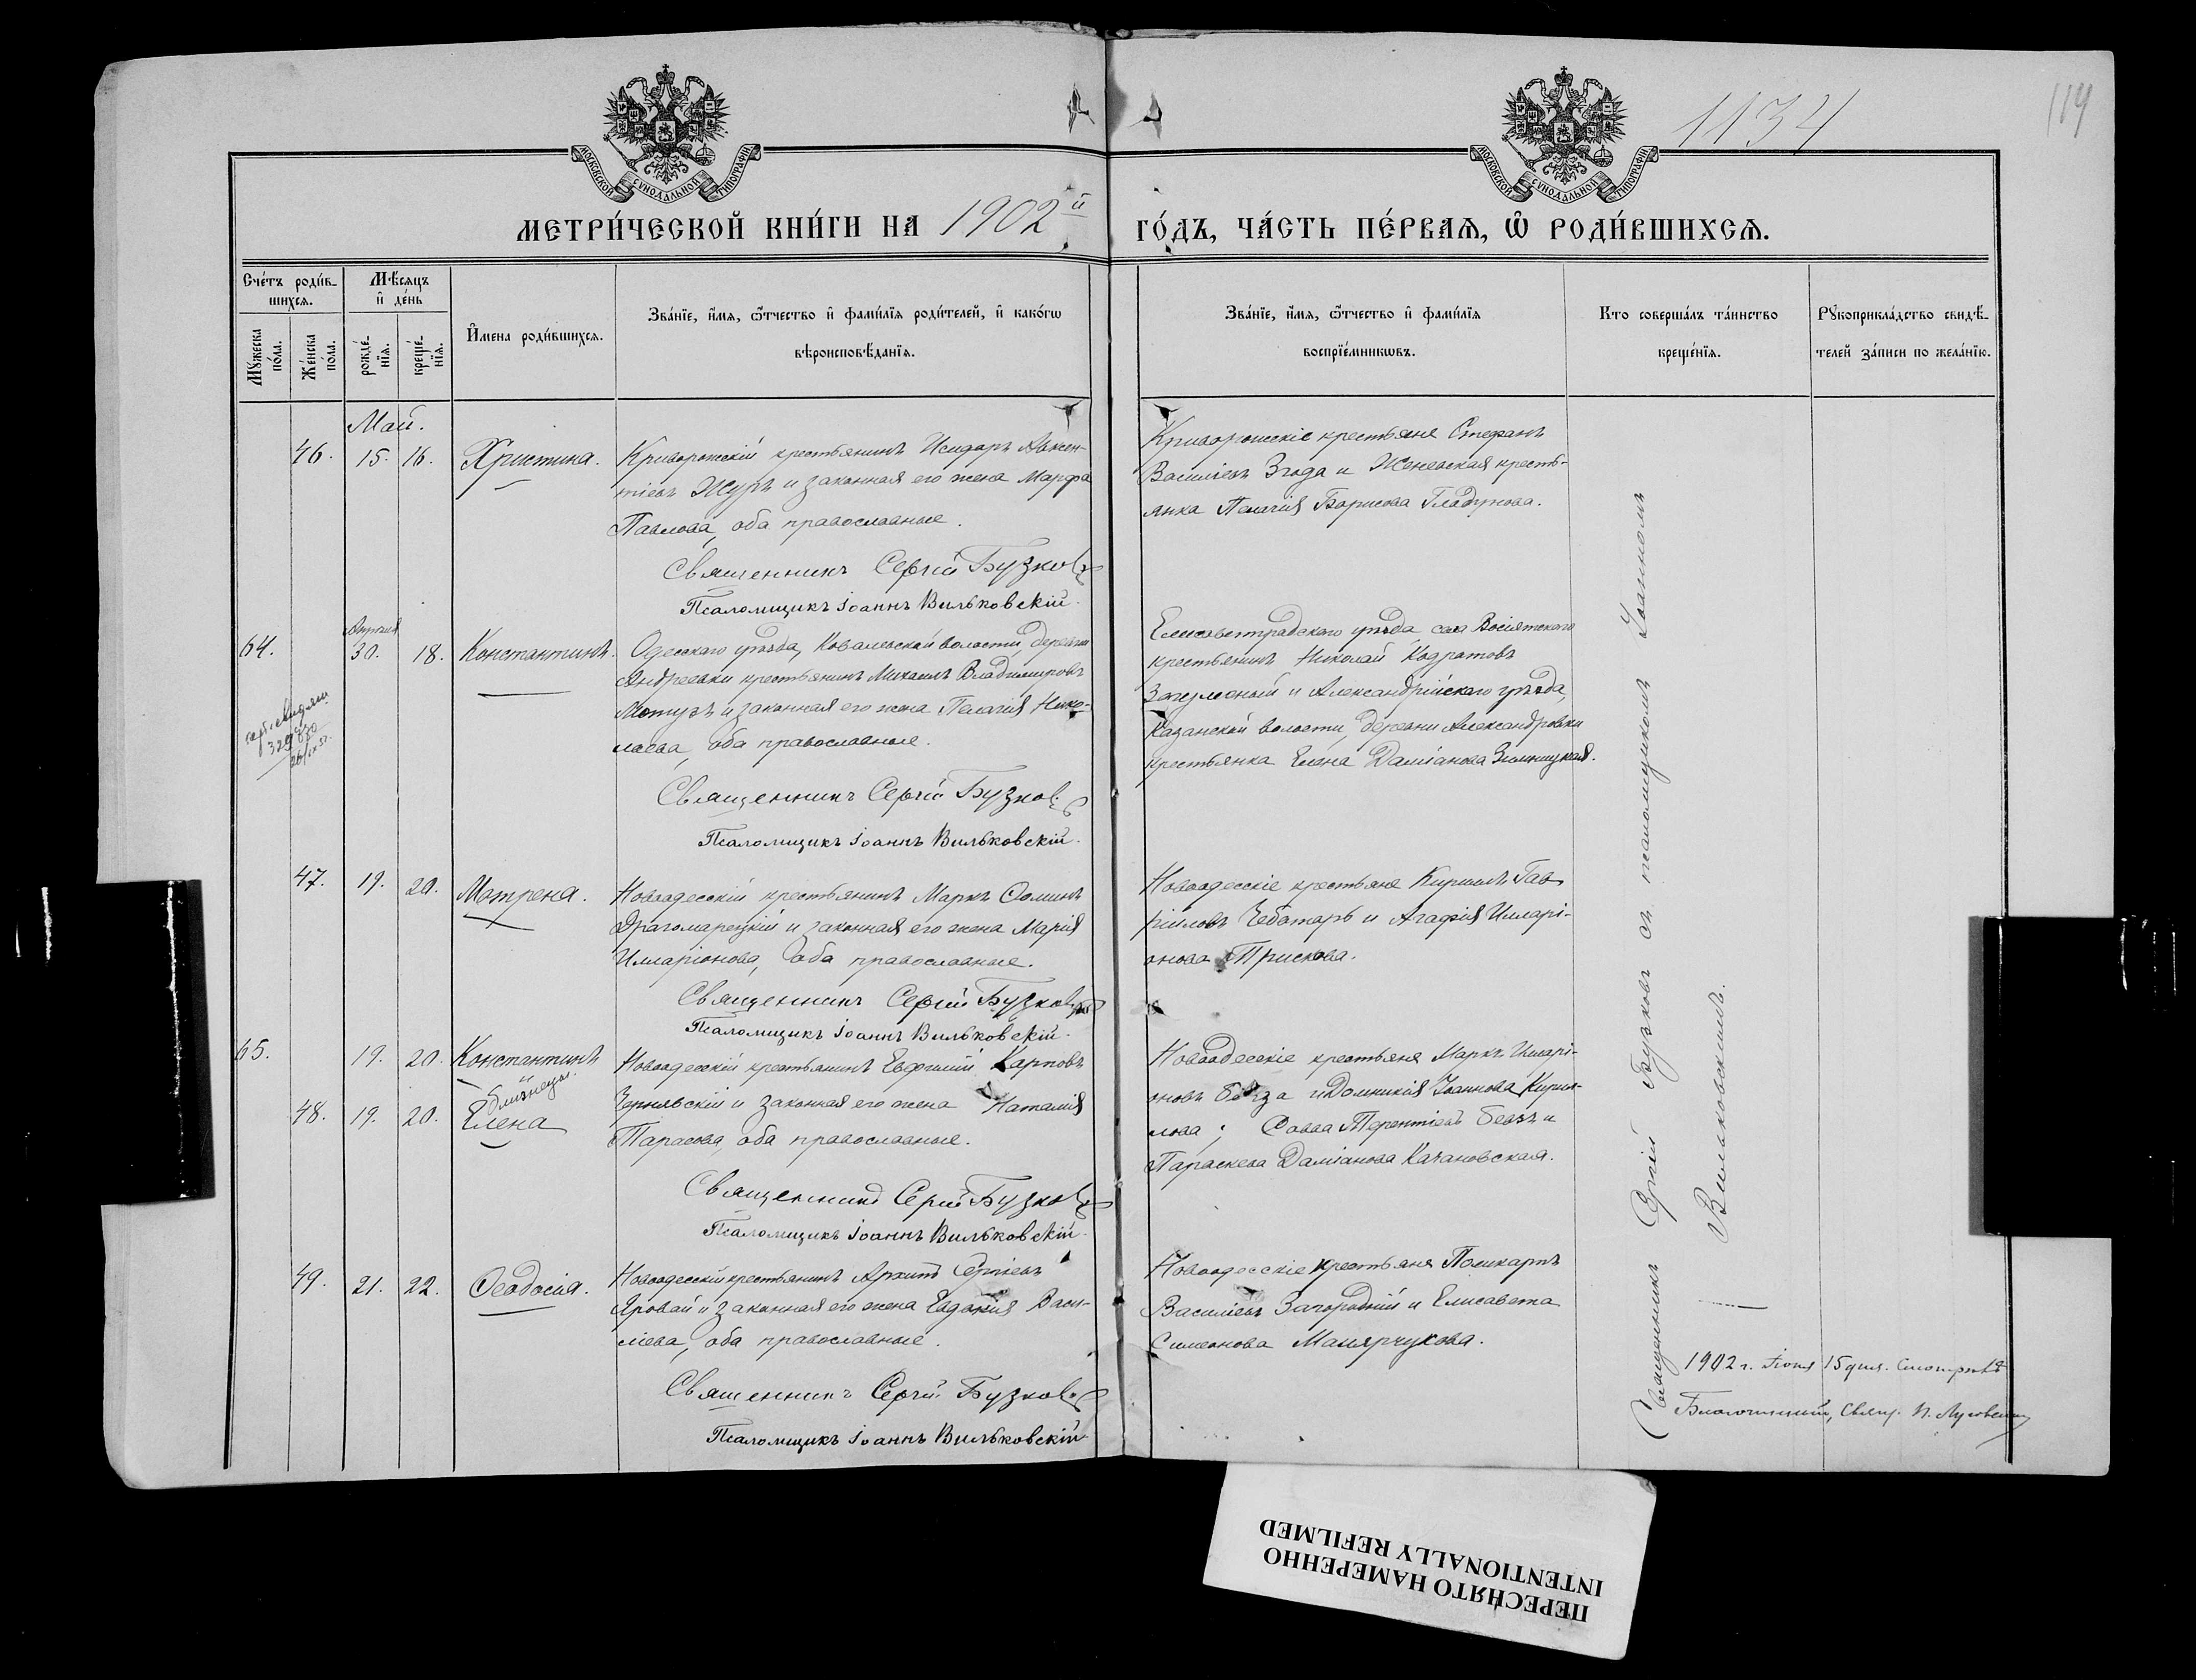 1134
119
МОСКОВСКОЙ СѴНОДАЛЬНОЙ ТИПОГРАФІИ
МОСКОВСКОЙ СѴНОДАЛЬНОЙ ТИПОГРАФІИ
МЕТРИ́ЧЕСКОЙ КНИ́ГИ НА 1902й ГО́ДЪ, ЧА́СТЬ ПЕ́РВАѦ, Ѽ РОДИ́ВШИХСѦ.
Сче́тъ роди́в-
шихсѧ.
Мꙋ́жеска по́ла.
Же́нска по́ла.
Мѣ́сѧцъ
и҆ де́нь
рожде́-
нїѧ.
креще́-
нїѧ.
И҆мена роди́вшихсѧ.
Зва́нїе, и҆́мѧ, ѻ҆́тчество и҆ фами́лїѧ роди́телей, и҆ како́гѡ
вѣроисповѣ́данїѧ.
Зва́нїе, и҆́мѧ, ѻ҆́тчество и҆ фами́лїѧ
воспрїе́мникѡвъ.
Кто соверша́лъ та́инство
креще́нїѧ.
Рꙋкоприкла́дство свидѣ́-
телей за́писи по жела́нїю.
Май.
46. 15. 16. Христина.
Криворожскій крестьянинъ Исидоръ Авксен-
тіевъ Журъ и законная его жена Марфа
Павлова, оба православные.
Священникъ Сергій Бузковъ
Псаломщикъ Іоаннъ Вильковскій.
Криворожскіе крестьяне Стефанъ
Василіевъ Згода и Женевская кресть-
янка Пелагія Борисова Гладунова.
Апрѣля
64. 30. 18. Константинъ.
Одесскаго уѣзда, Ковалевской волости, деревни
Андреевки крестьянинъ Михаилъ Владиміровъ
Мотузъ и законная его жена Пелагія Нико-
лаева, оба православные.
Священникъ Сергій Бузковъ
Псаломщикъ Іоаннъ Вильковскій.
Елисаветградскаго уѣзда, села Восіятскаго
крестьянинъ Николай Кодратовъ
и Александрійскаго уѣзда,
Казанской волости, деревни Александровки
крестьянка Елена Даміанова
47. 19. 20. Мотрена.
Новоодесскій крестьянинъ Маркъ Ѳоминъ
Драгомарецкій и законная его жена Марія
Илларіонова, оба православные.
Священникъ Сергій Бузковъ
Псаломщикъ Іоаннъ Вильковскій.
Новоодесскіе крестьяне Кириллъ Гав-
ріиловъ Чеботарь и Агафія Илларі-
онова Трискова.
65. 19. 20. Константинъ
близнецы.
48. 19. 20. Елена
Новоодесскій крестьянинъ Евфимій Карповъ
Чернявскій и законная его жена Наталія
Тарасова, оба православные.
Священникъ Сергій Бузковъ
Псаломщикъ Іоаннъ Вильковскій.
Новоодесскіе крестьяне Маркъ Илларі-
оновъ и Домникія Іоаннова Кирил-
лова; Савва Терентіевъ Бевзъ и
Параскева Даміанова Качановская.
49. 21. 22. Ѳеодосія.
Новоодесскій крестьянинъ Архипъ Сергіевъ
Яровай и законная его жена Евдокія Васи-
ліева, оба православные.
Священникъ Сергій Бузковъ
Псаломщикъ Іоаннъ Вильковскій
Новоодесскіе крестьяне Поликарпъ
Василіевъ Загородній и Елисавета
Симеонова Малярчукова.
Священникъ Сергій Бузковъ съ псаломщикомъ Іоанномъ
Вильковскимъ.
1902 г. Іюня 15 дня. Смотрѣлъ
Благочинный, Свящ.
ПЕРЕСНЯТО НАМЕРЕННО
INTENTIONALLY REFILMED